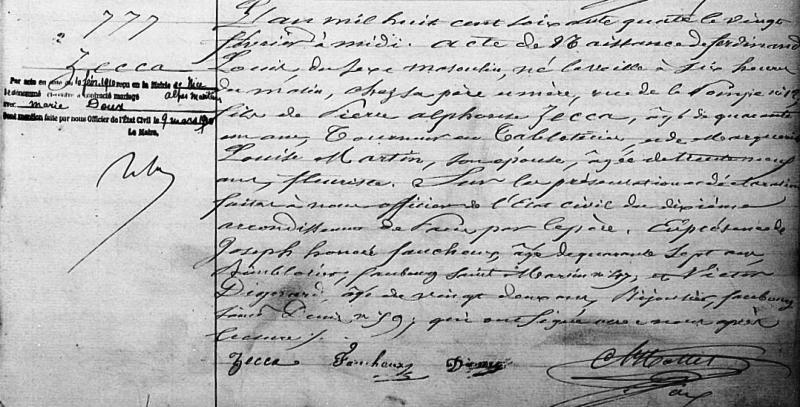 777
Zecca
Par acte en date du 10 fév. 1910 reçu en la Mairie de Nice
Alpes Maritimes
le dénommé ci-contre a contracté mariage
avec Marie Doux
Dont mention faite par nous Officier de l'État Civil le 9 mars 1910
Le Maire,
L'an mil huit cent soixante quatre le vingt
février à midi. Acte de Naissance de ferdinand
Louis, du sexe masculin, né la veille à six heures
du matin, chez sa père & mère, rue de la
fils de Pierre alphonse Zecca, âgé de quarante
un ans, Tourneur en Tabletterie, & de Marguerite
Louise Martin, son épouse, âgée de trente neuf
ans, fleuriste. Sur la présentation & déclaration
faites à nous officier de l'État civil du dixième
arrondissement de Paris par le père. En présence de
Joseph honoré faucheux, âgé de quarante sept ans
faubourg Saint Martin n° 47, & Victor
âgé de vingt deux ans, Bijoutier, faubourg
Saint Denis n° 59; qui ont signé avec nous après
lecture /.
Zecca Faucheux